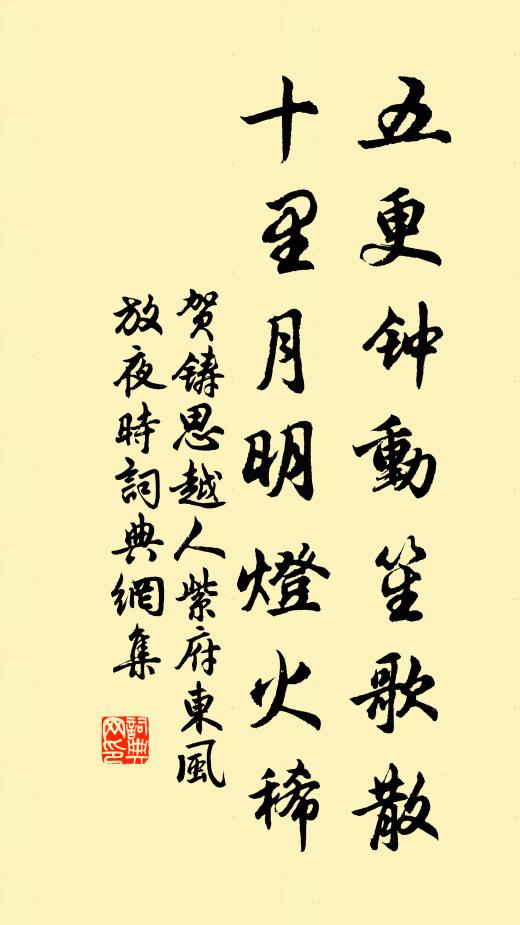 五更钟動笙歌散
十里月明燈火稀
贺鑄思越人紫府東風
放夜時詞典網集
詞典
网印